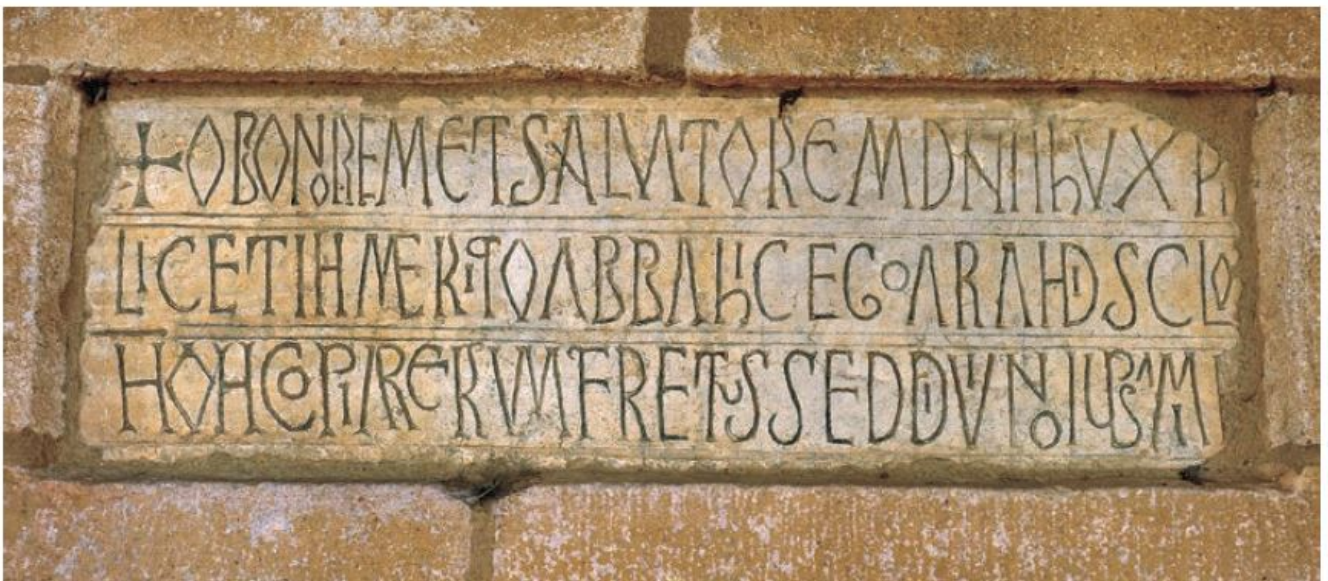 + OBONOREMETSALVATOREMDNIIhVXPI
LICETIHMERITOABBAhICEGOARAHDISCLO
HOHCOPIARERVMFRETUSSEDDIVINOIUBAMI